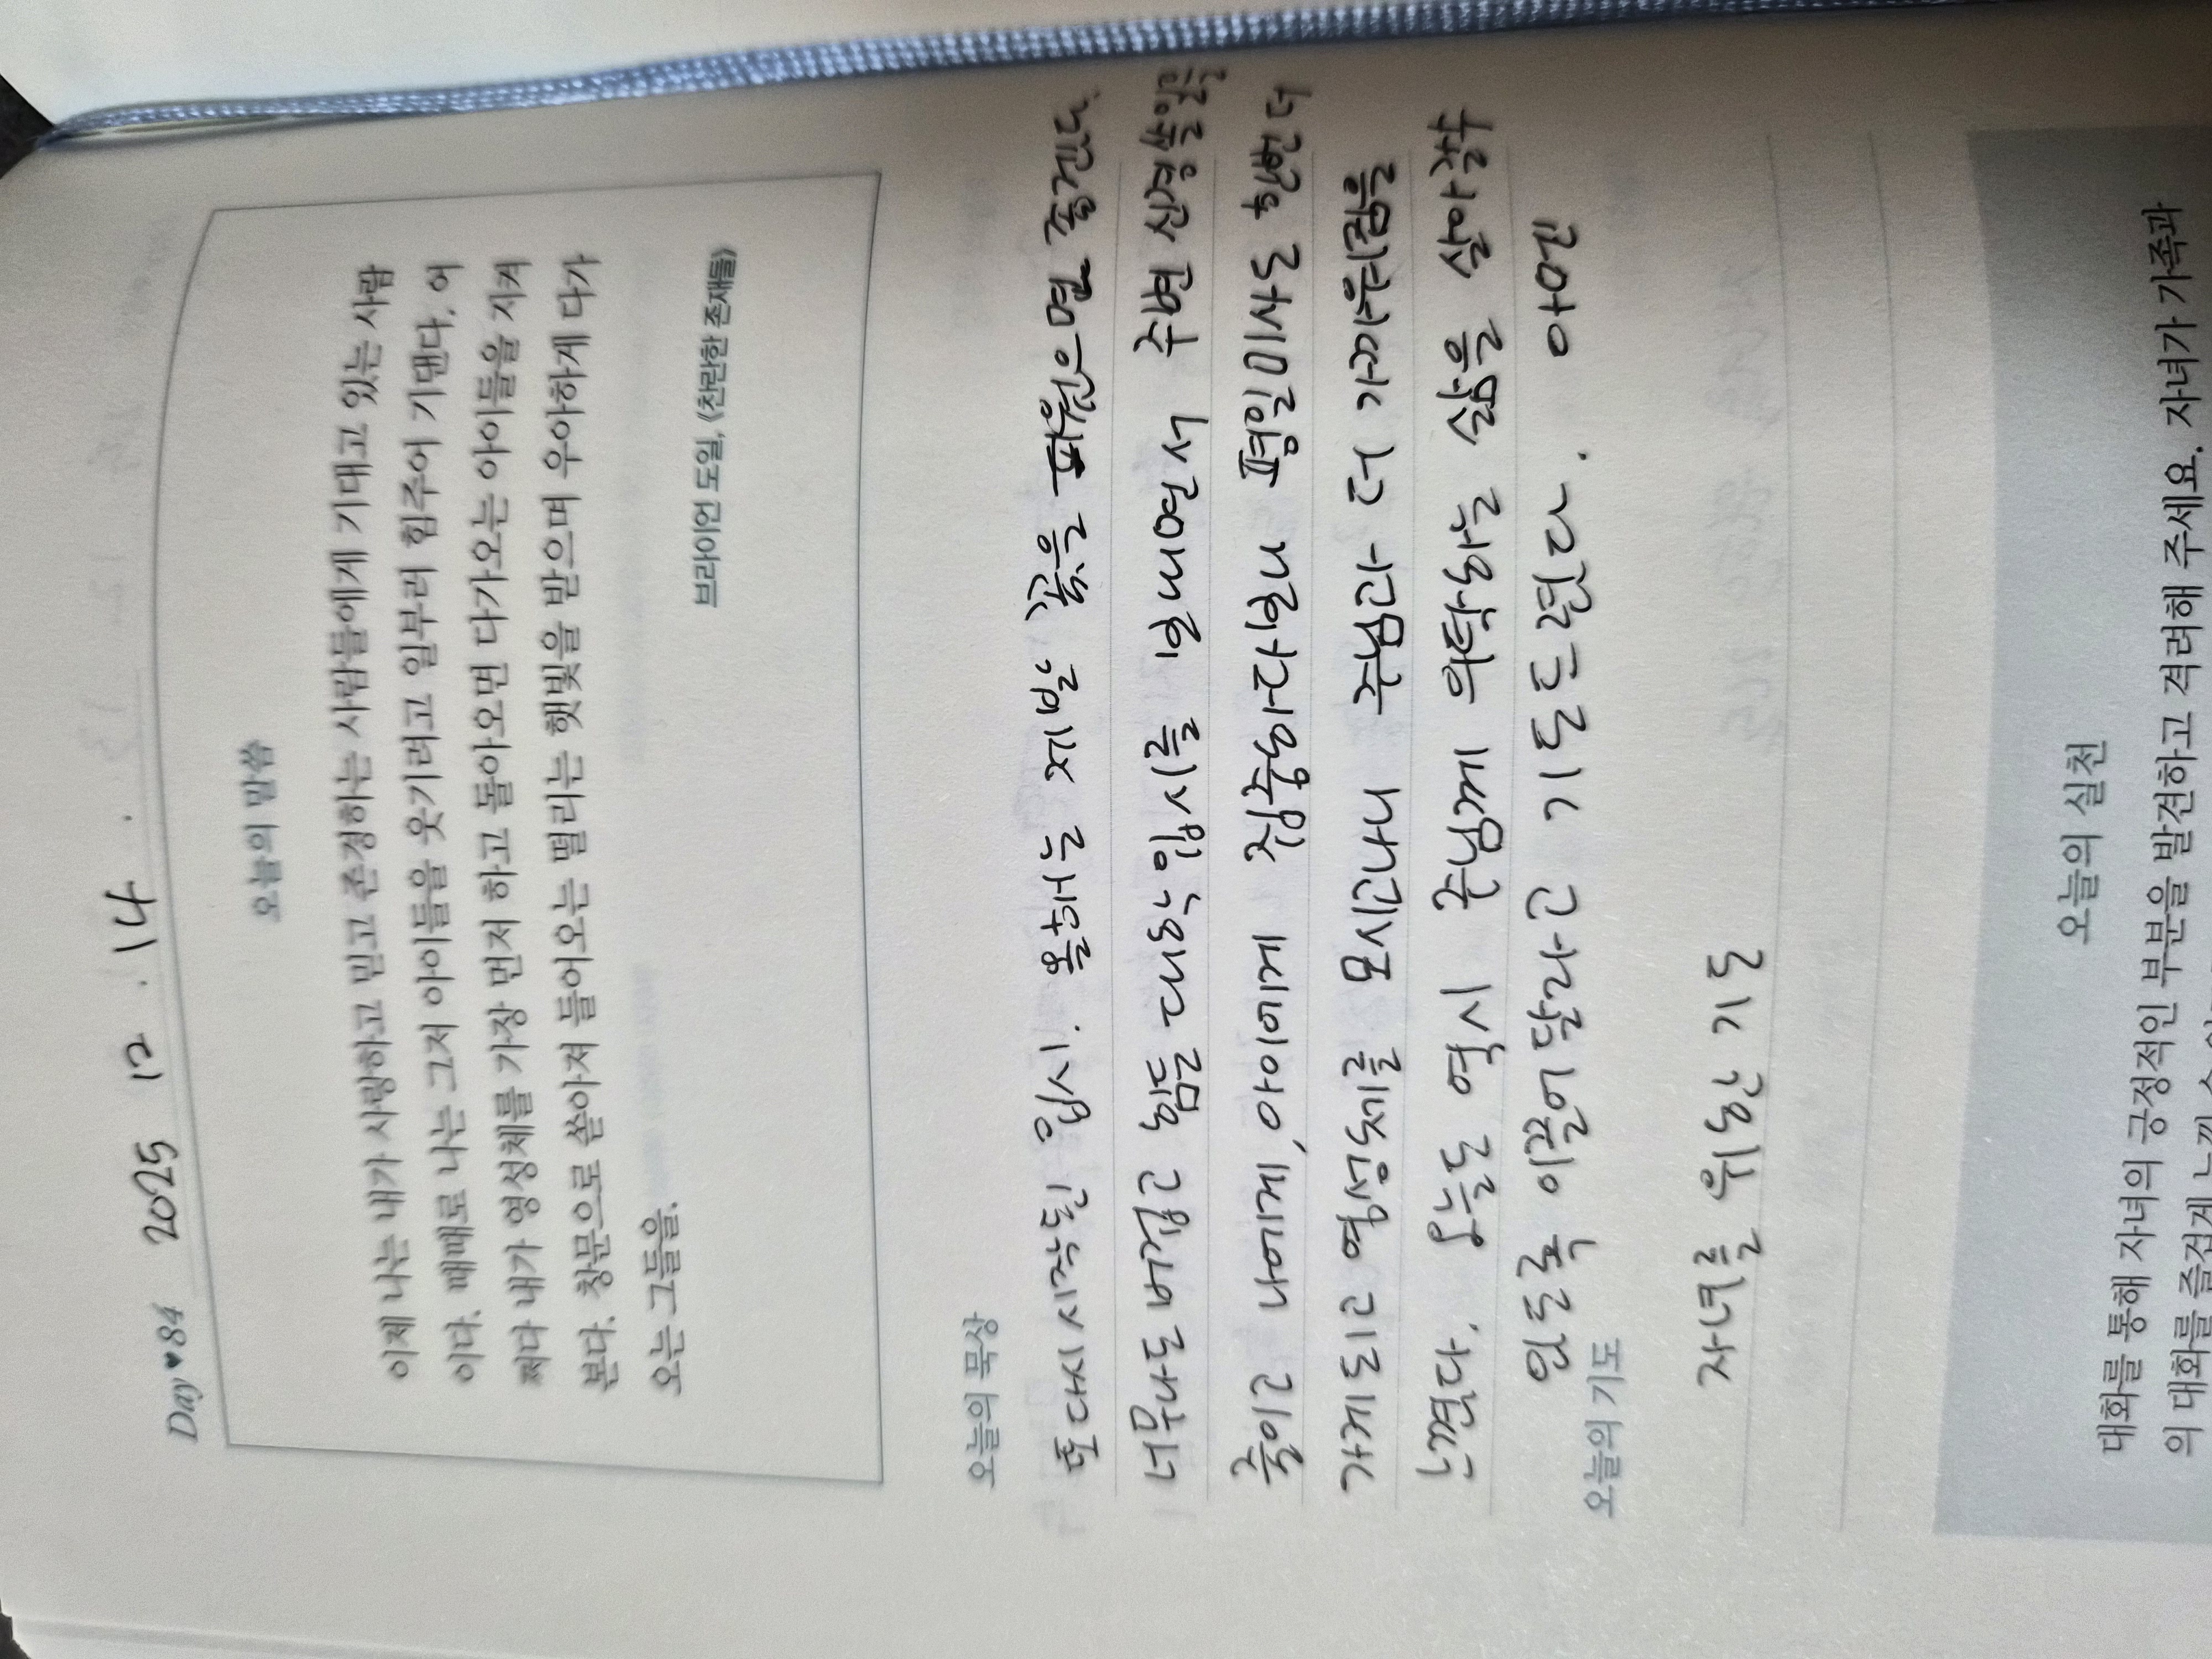 Day ♥ 84 2025 12. 14.
오늘의 말씀
이제 나는 내가 사랑하고 믿고 존경하는 사람들에게 기대고 있는 사람
이다. 때때로 나는 그저 아이들을 웃기려고 일부러 힘주어 기댄다. 어
쩌다 내가 영성체를 가장 먼저 하고 돌아오면 다가오는 아이들을 지켜
본다. 창문으로 쏟아져 들어오는 떨리는 햇빛을 받으며 우아하게 다가
오는 그들을.
브라이언 도일, 《찬란한 존재들》
오늘의 묵상
또 다시 시작된 입시. 올해는 제발 꽃을 피웠으면 좋겠다.
너무나도 버겁고 힘든 대학입시를 일 내면서 주변 신경쓸 일을
줄이고 나에게, 아이에게 집중하다보니 평일미사로 향한 더
가게되고 영성체를 모시고나니 주님과 더 가까워짐을
느꼈다. 오늘도 역시 주님께 의탁하는 삶을 살아갈수
있도록 이끌어달라고 기도드렸다. 아멘
오늘의 기도
자녀를 위한 기도
오늘의 실천
대화를 통해 자녀의 긍정적인 부분을 발견하고 격려해 주세요. 자녀가 가족과
의 대화를 즐겁게 느낄 수